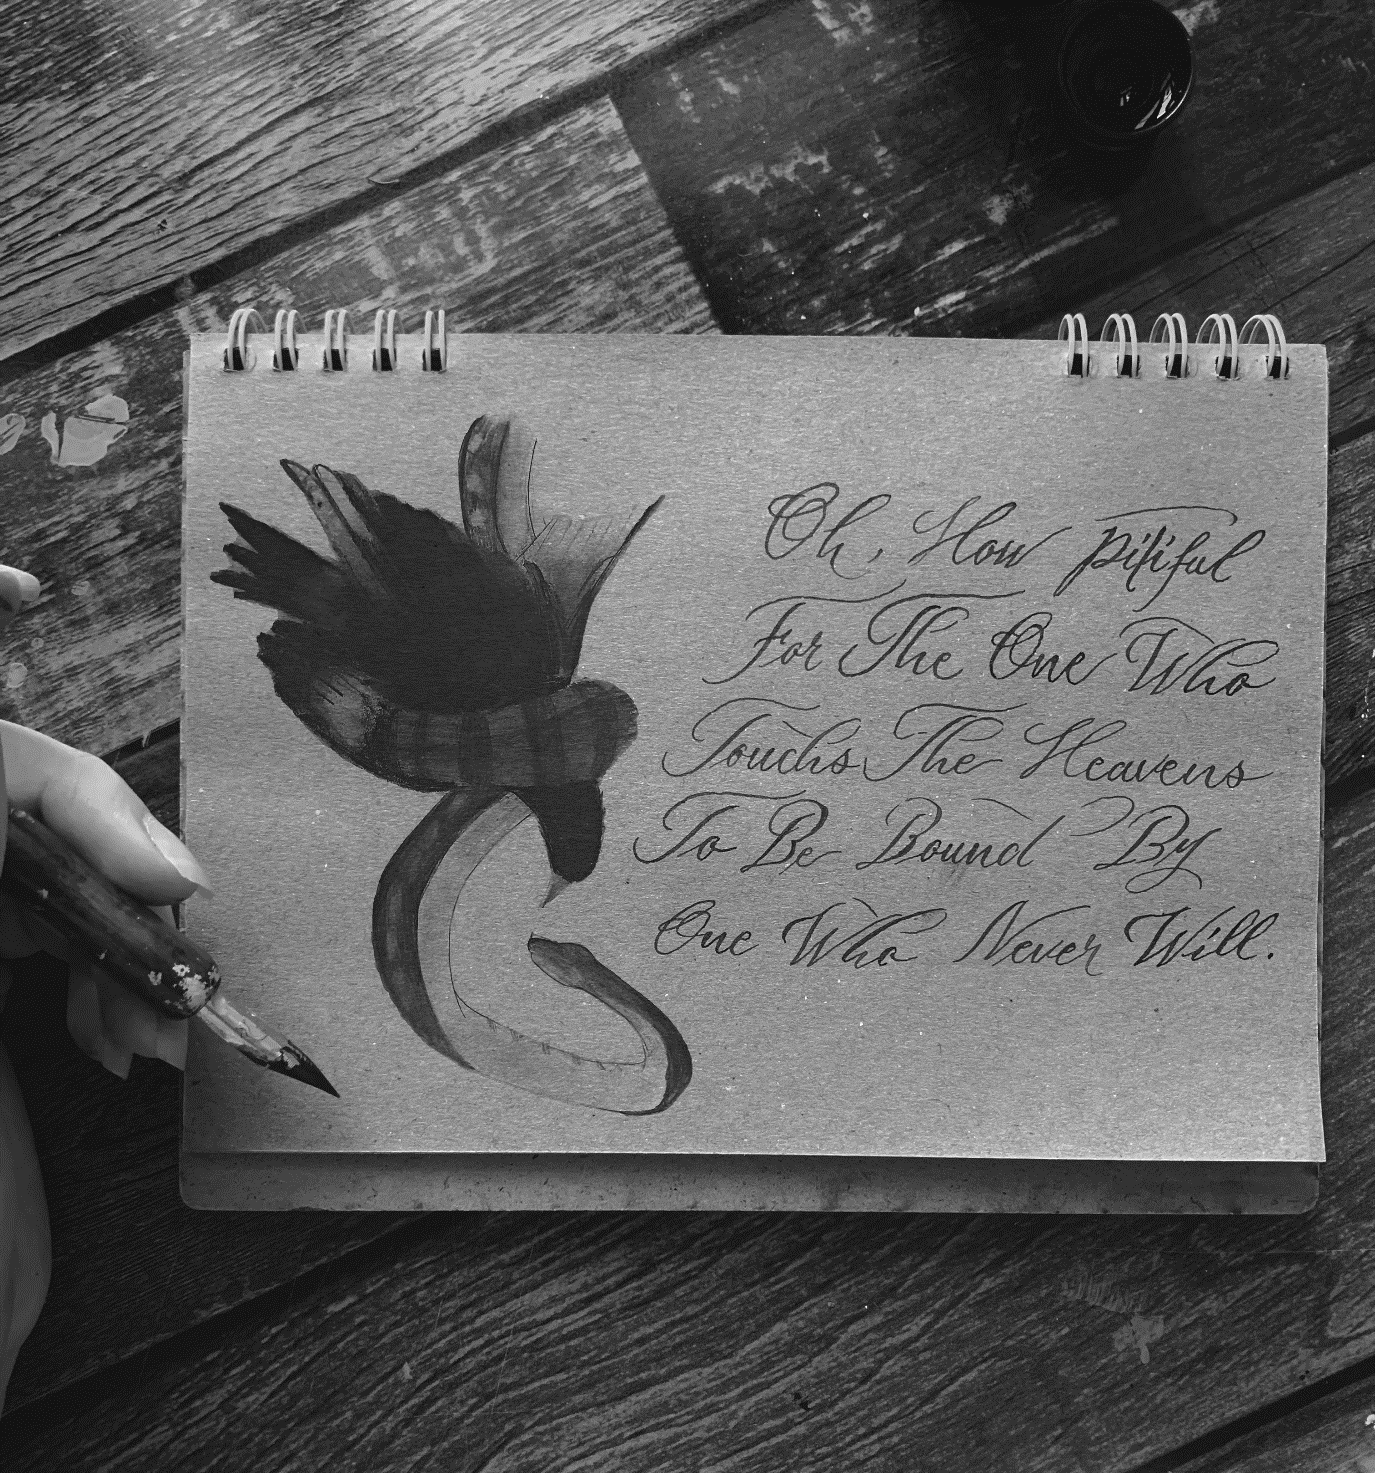 Oh, How pitiful
For The One Who
Touchs The Heavens
To Be Bound By
One Who Never Will.